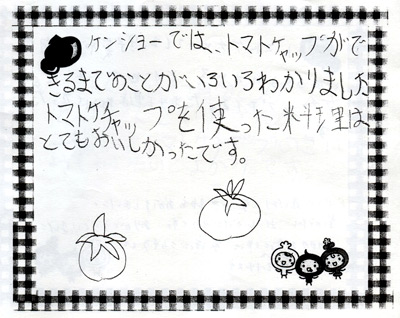 ケンショーでは、トマトケャップがで
きるまでのことがいろいろわかりました
トマトケチャップを使った米斗理は
とてもおいしかったです。